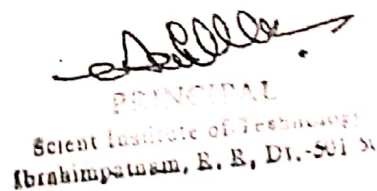 PRINCIPAL
Scient Institute of Technology
Ibrahimpatnam, R. R, Dt.-501